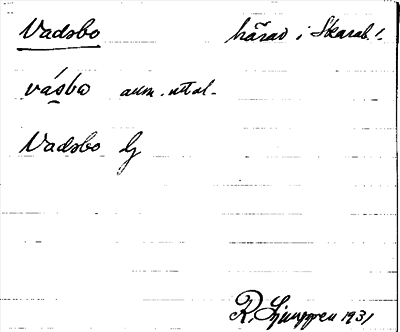 Vadsbo härad i Skarab. l.
vásbo aum. uttal.
Vadsbo Lj
R. Ljunggren 1931